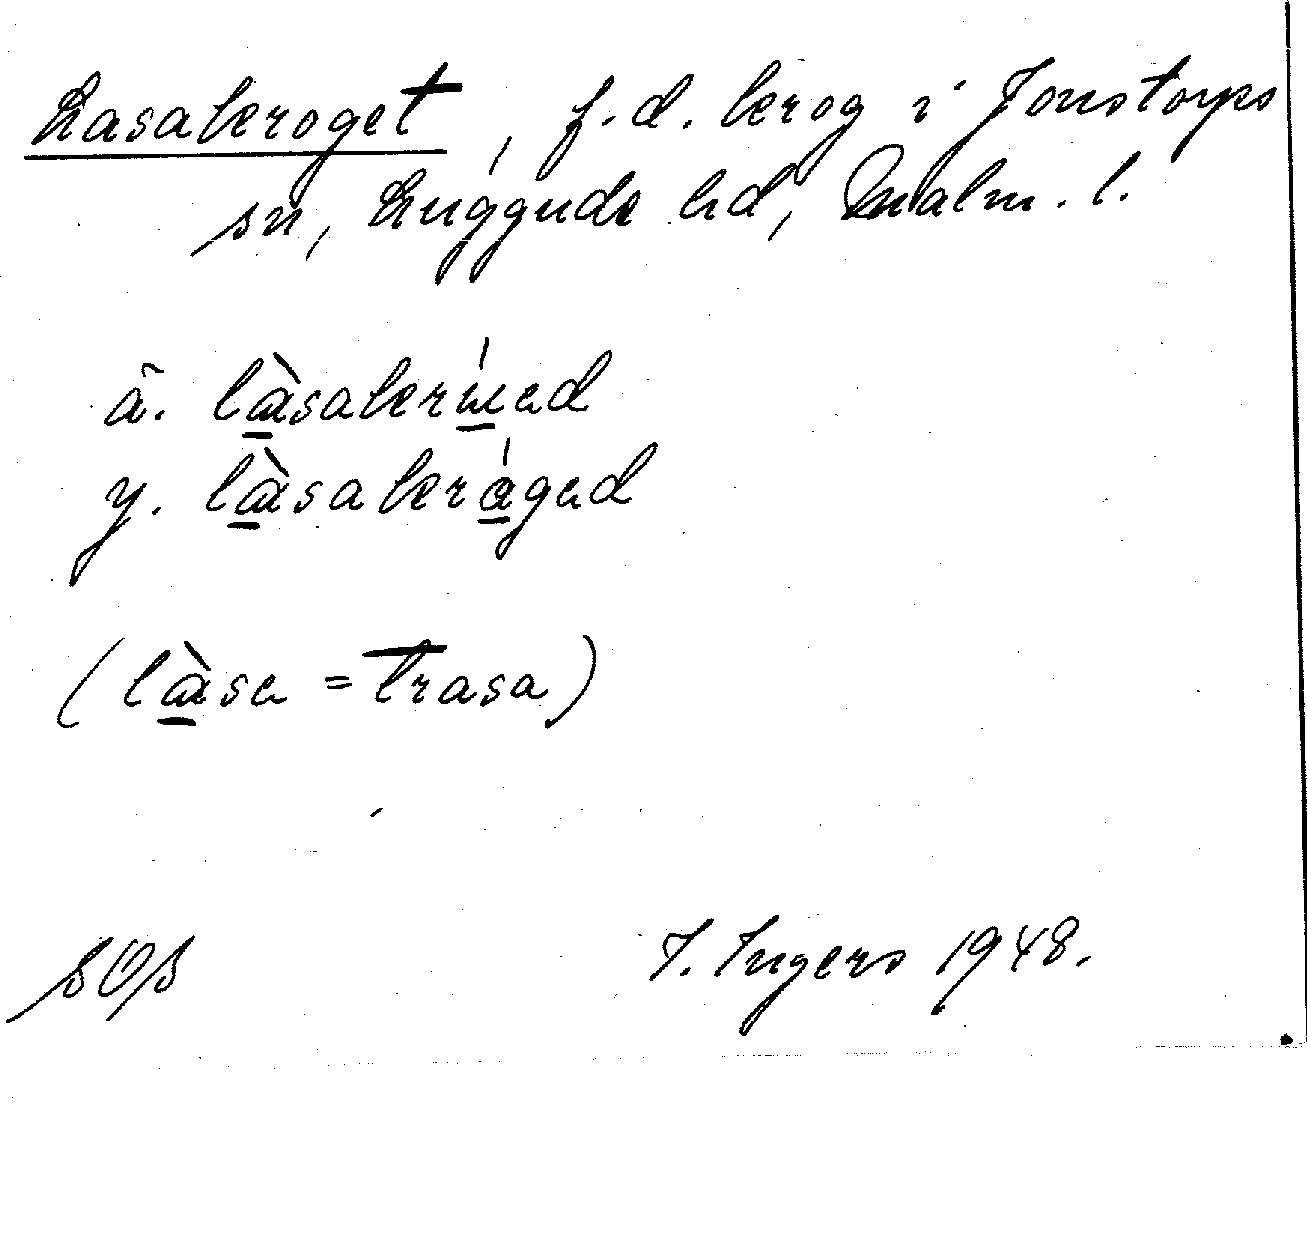 Lasakroget, f.d. krog i Jonstorps
sn, Luggude hd, Malm. l.
ä. làsakrúed
y. làsakráged
(làsa = trasa)
SOS I. Ingers 1948.